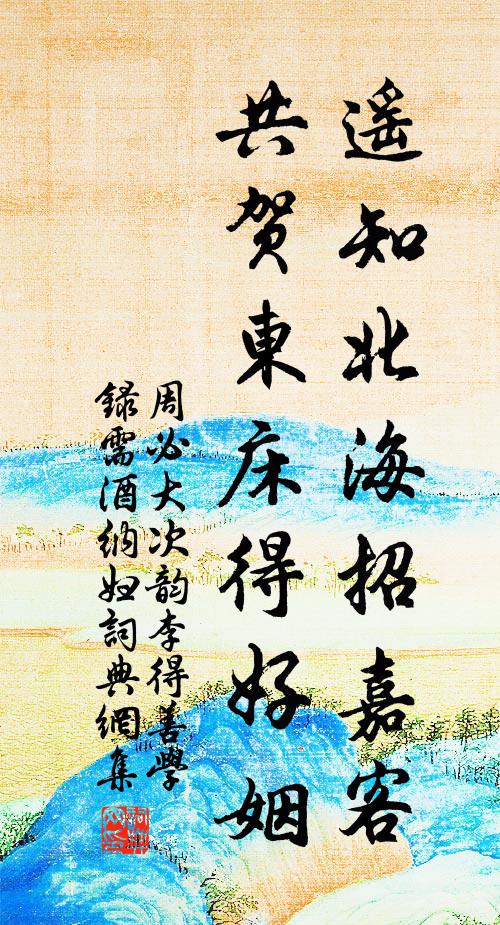 遥知北海招嘉客
共贺東床得好姻
周必大次韵李得善學
録需酒纳妞詞典網集